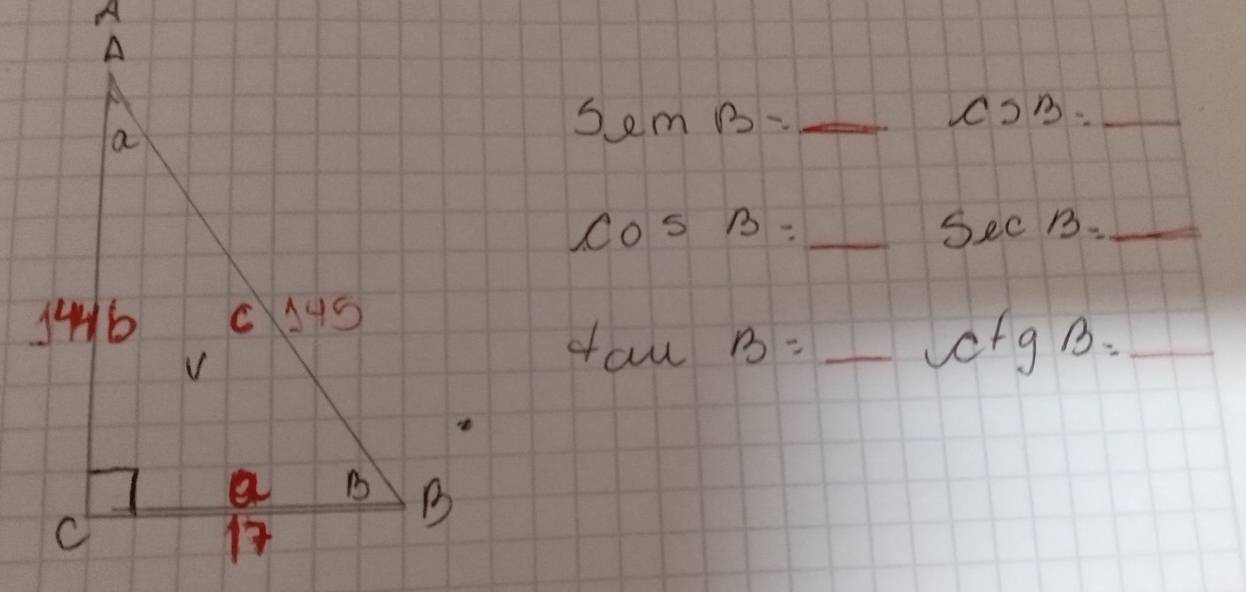 A
A
a
Sem B = ___ csB = ___
cos B = ___ Sec B = ___
144 b c 145
tau B = ___ ctg B = ___
v
a B B
C 17